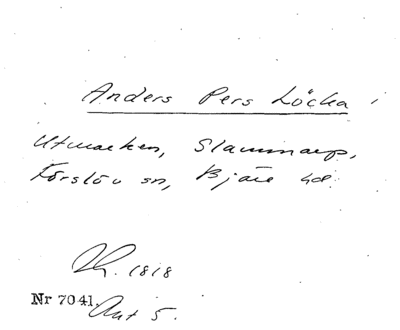 Anders Pers Löcka
Utmarken, Slammarp,
Förslöv sn, Bjäre hd.
1818
Nr 7041. Ant 5.